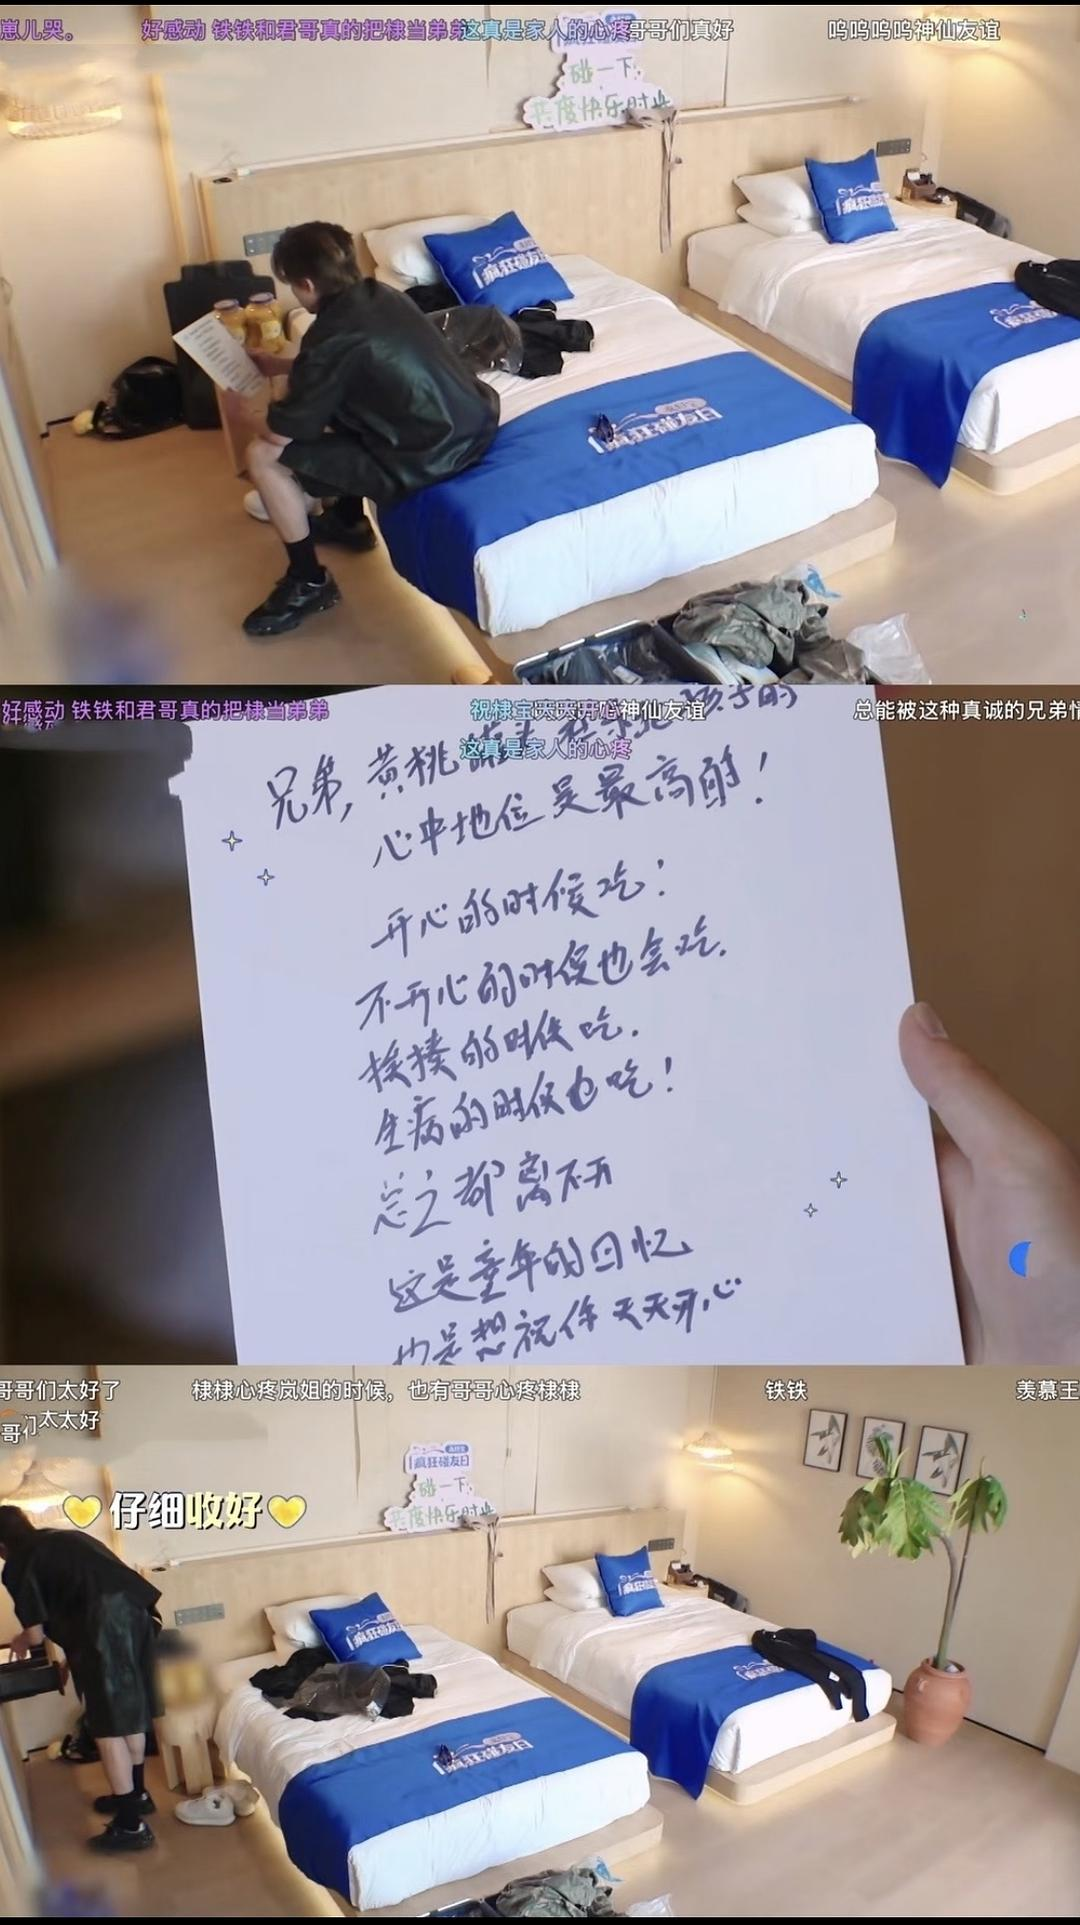 崽儿哭。
好感动 铁铁和君哥真的把棣当弟弟
这真是家人的心疼
哥哥们真好
呜呜呜呜神仙友谊
碰一下
共度快乐时光
疯狂碰友日
疯狂碰友日
疯狂碰友日
疯狂碰友日
好感动 铁铁和君哥真的把棣当弟弟
祝棣宝天天开心
神仙友谊
总能被这种真诚的兄弟情
这真是家人的心疼
兄弟,黄桃罐头
心中地位是最高的!
开心的时候吃!
不开心的时候也会吃.
挨揍的时候吃.
生病的时候也吃!
总之都离不开
这是童年的回忆
也是想祝你天天开心
哥哥们太好了
棣棣心疼岚姐的时候，也有哥哥心疼棣棣
铁铁
羡慕王
太太好
仔细收好
疯狂碰友日
碰一下
共度快乐时光
疯狂碰友日
疯狂碰友日
疯狂碰友日